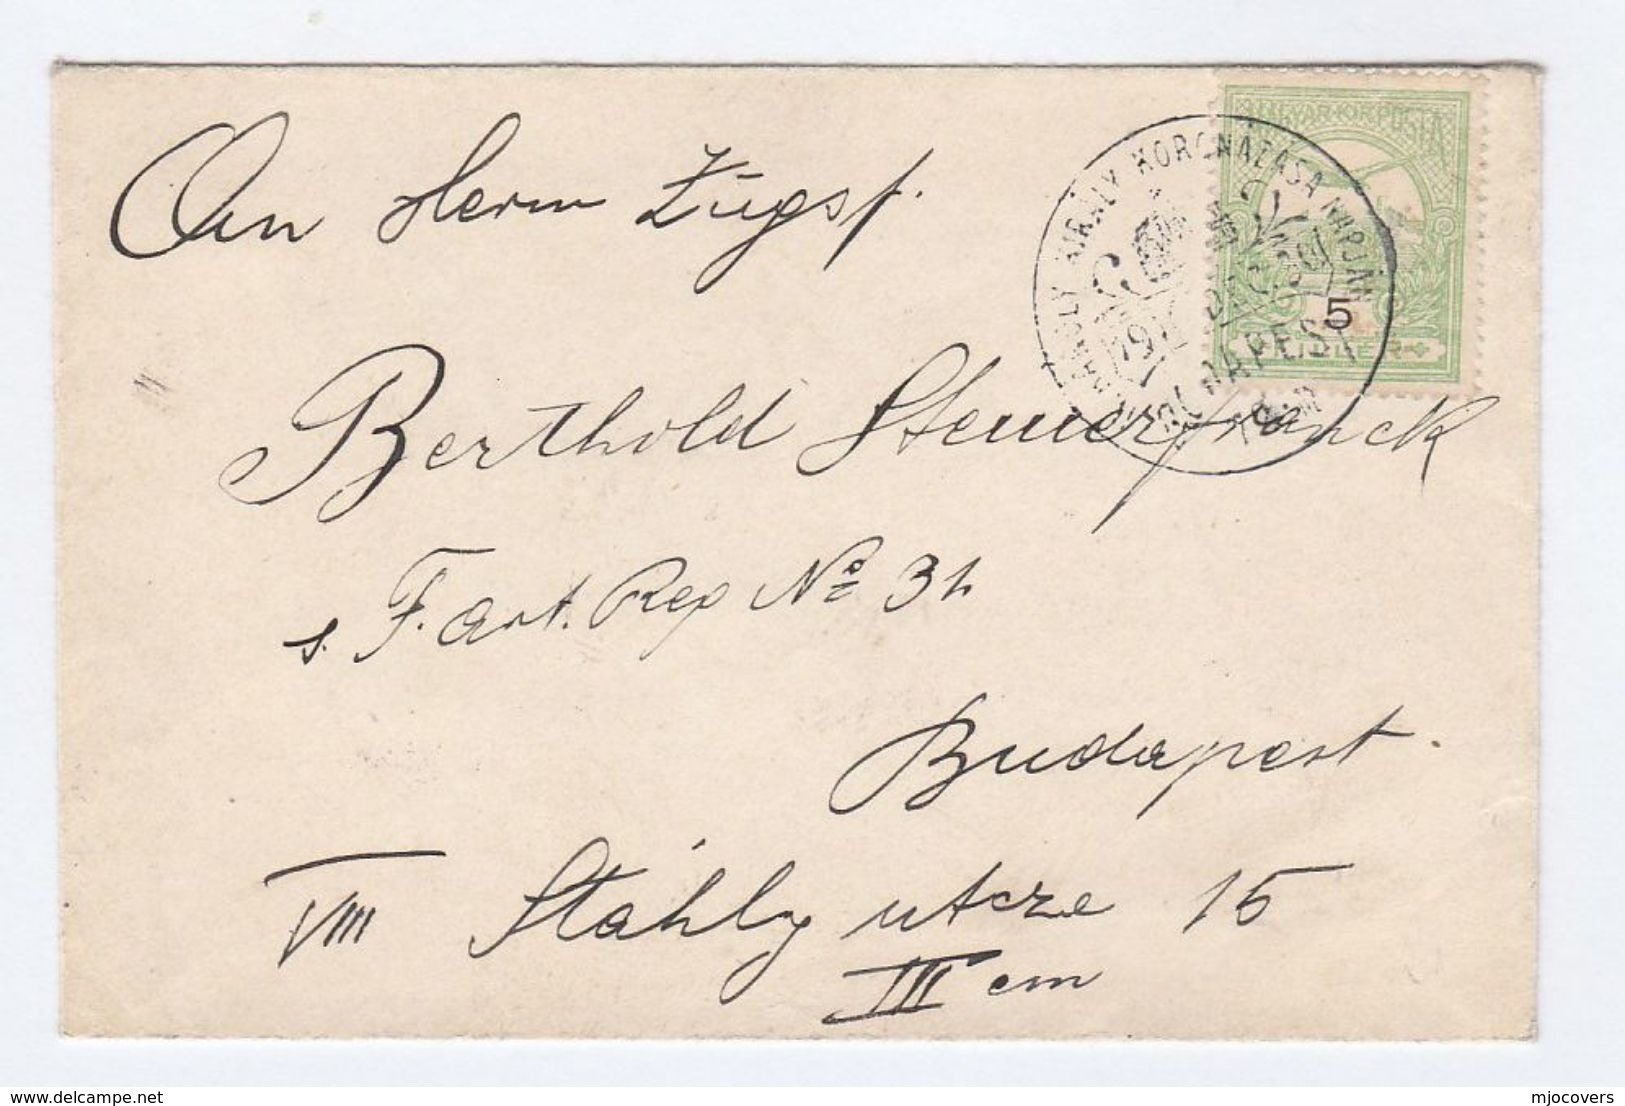 MAGYAR KIR. POSTA
KÁROLY KIRÁLY KORONÁZÁSA NAPJÁN
BUDAPEST
5
FILLÉR
An Herrn Zugsf.
Berthold
s. F. Art. Reg No
Budapest.
VIII Stáhly utcze 15
III em
mjocovers